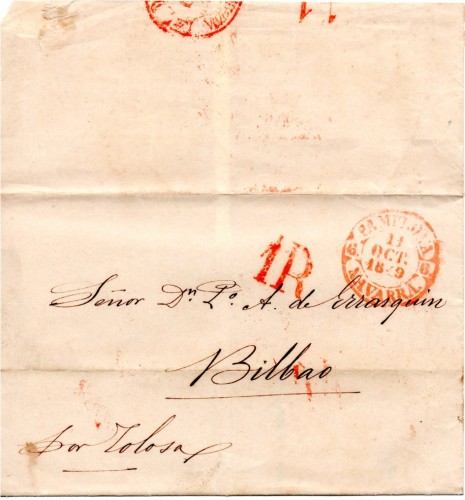 1R
PAMPLONA
11
OCT.
NAVARRA.
Señor Dn. Po. A. de Errasquin
Bilbao
por Tolosa